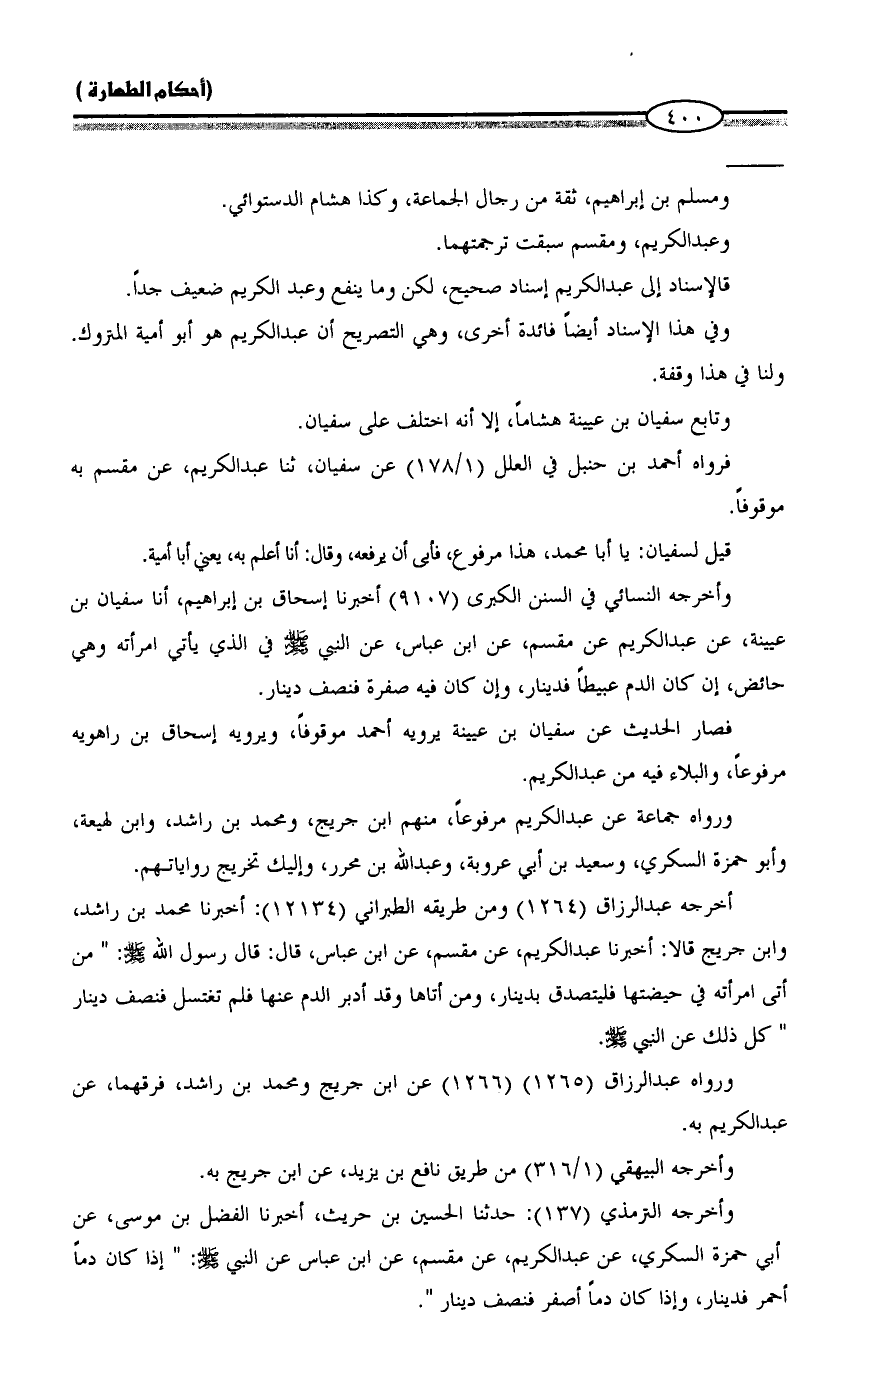 (أحكام الطهارة)
٤٠٠
ومسلم بن إبراهيم، ثقة من رجال الجماعة، وكذا هشام الدستوائي.
وعبدالكريم، ومقسم سبقت ترجمتهما.
فالإسناد إلى عبدالكريم إسناد صحيح، لكن وما ينفع وعبد الكريم ضعيف جداً.
وفي هذا الإسناد أيضاً فائدة أخرى، وهي التصريح أن عبدالكريم هو أبو أمية المتروك.
ولنا في هذا وقفة.
وتابع سفيان بن عيينة هشاماً، إلا أنه اختلف على سفيان.
فرواه أحمد بن حنبل في العلل (١/١٧٨) عن سفيان، ثنا عبدالكريم، عن مقسم به
موقوفاً.
قيل لسفيان: يا أبا محمد، هذا مرفوع، فأبى أن يرفعه، وقال: أنا أعلم به، يعني أبا أمية.
وأخرجه النسائي في السنن الكبرى (٩١٠٧) أخبرنا إسحاق بن إبراهيم، أنا سفيان بن
عيينة، عن عبدالكريم عن مقسم، عن ابن عباس، عن النبي ﷺ في الذي يأتي امرأته وهي
حائض، إن كان الدم عبيطاً فدينار، وإن كان فيه صفرة فنصف دينار.
فصار الحديث عن سفيان بن عيينة يرويه أحمد موقوفاً، ويرويه إسحاق بن راهويه
مرفوعاً، والبلاء فيه من عبدالكريم.
ورواه جماعة عن عبدالكريم مرفوعاً، منهم ابن جريج، ومحمد بن راشد، وابن لهيعة،
وأبو حمزة السكري، وسعيد بن أبي عروبة، وعبدالله بن محرر، وإليك تخريج رواياتـهم.
أخرجه عبدالرزاق (١٢٦٤) ومن طريقه الطبراني (١٢١٣٤): أخبرنا محمد بن راشد،
وابن جريج قالا: أخبرنا عبدالكريم، عن مقسم، عن ابن عباس، قال: قال رسول الله ﷺ: " من
أتى امرأته في حيضتها فليتصدق بدينار، ومن أتاها وقد أدبر الدم عنها فلم تغتسل فنصف دينار
" كل ذلك عن النبي ﷺ.
ورواه عبدالرزاق (١٢٦٥) (١٢٦٦) عن ابن جريج ومحمد بن راشد، فرقهما، عن
عبدالكريم به.
وأخرجه البيهقي (١/٣١٦) من طريق نافع بن يزيد، عن ابن جريج به.
وأخرجه الترمذي (١٣٧): حدثنا الحسين بن حريث، أخبرنا الفضل بن موسى، عن
أبي حمزة السكري، عن عبدالكريم، عن مقسم، عن ابن عباس عن النبي ﷺ: " إذا كان دماً
أحمر فدينار، وإذا كان دماً أصفر فنصف دينار ".